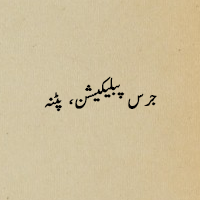 جرس پبلیکیشن، پٹنہ